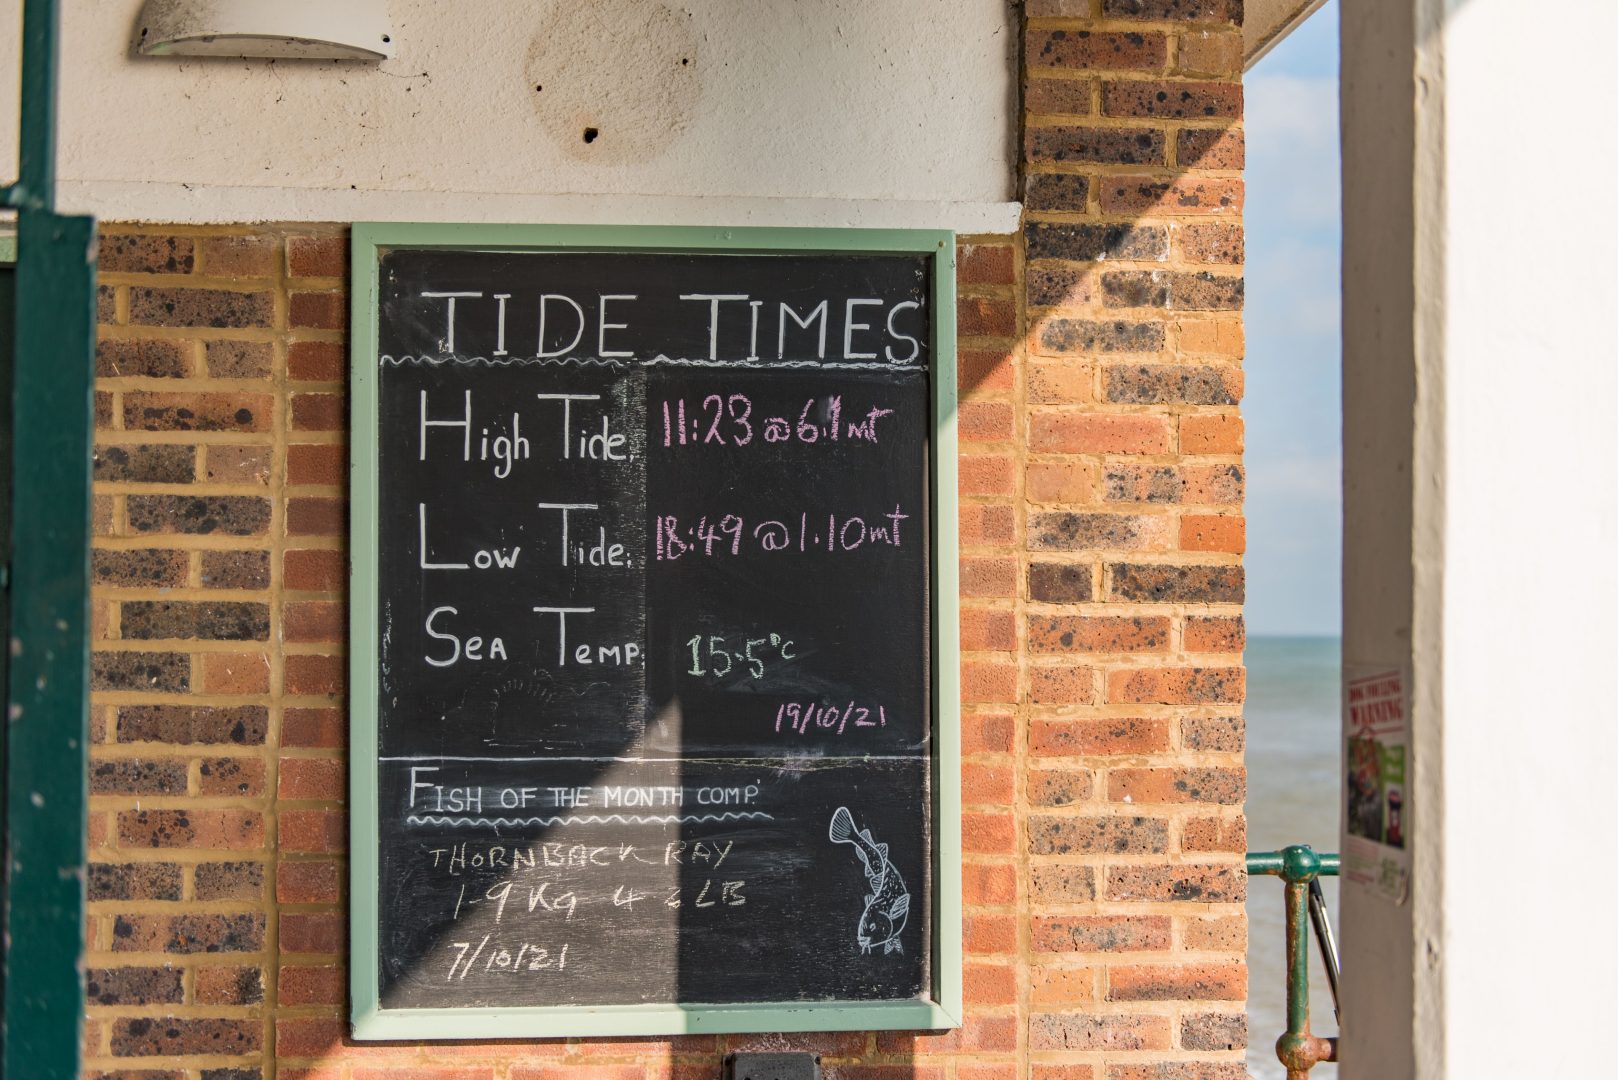 TIDE TIMES
High Tide: 11:23 @ 6.1mt
Low Tide: 18:49 @ 1.10mt
Sea Temp: 15.5°C
19/10/21
FISH OF THE MONTH COMP.
THORNBACK RAY
1-9 Kg 4 2 LB
7/10/21
DOG FOULING
WARNING